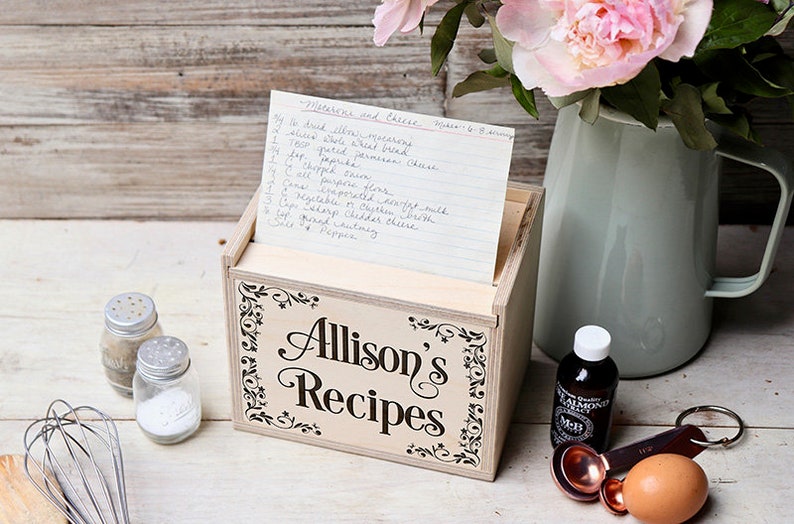 Macaroni and Cheese Makes: 6-8 servings
3/4 lb dried elbow macaroni
2 slices whole wheat bread
1 TBSP grated parmesan cheese
1/4 tsp. paprika
1 C chopped onion
C all purpose flour
cans evaporated nonfat milk
C vegetable or chicken broth
3 Cups sharp cheddar cheese
tsp ground nutmeg
Salt & Pepper
Allison's
Recipes
Quality
ALMOND
EXTRACT
M&B